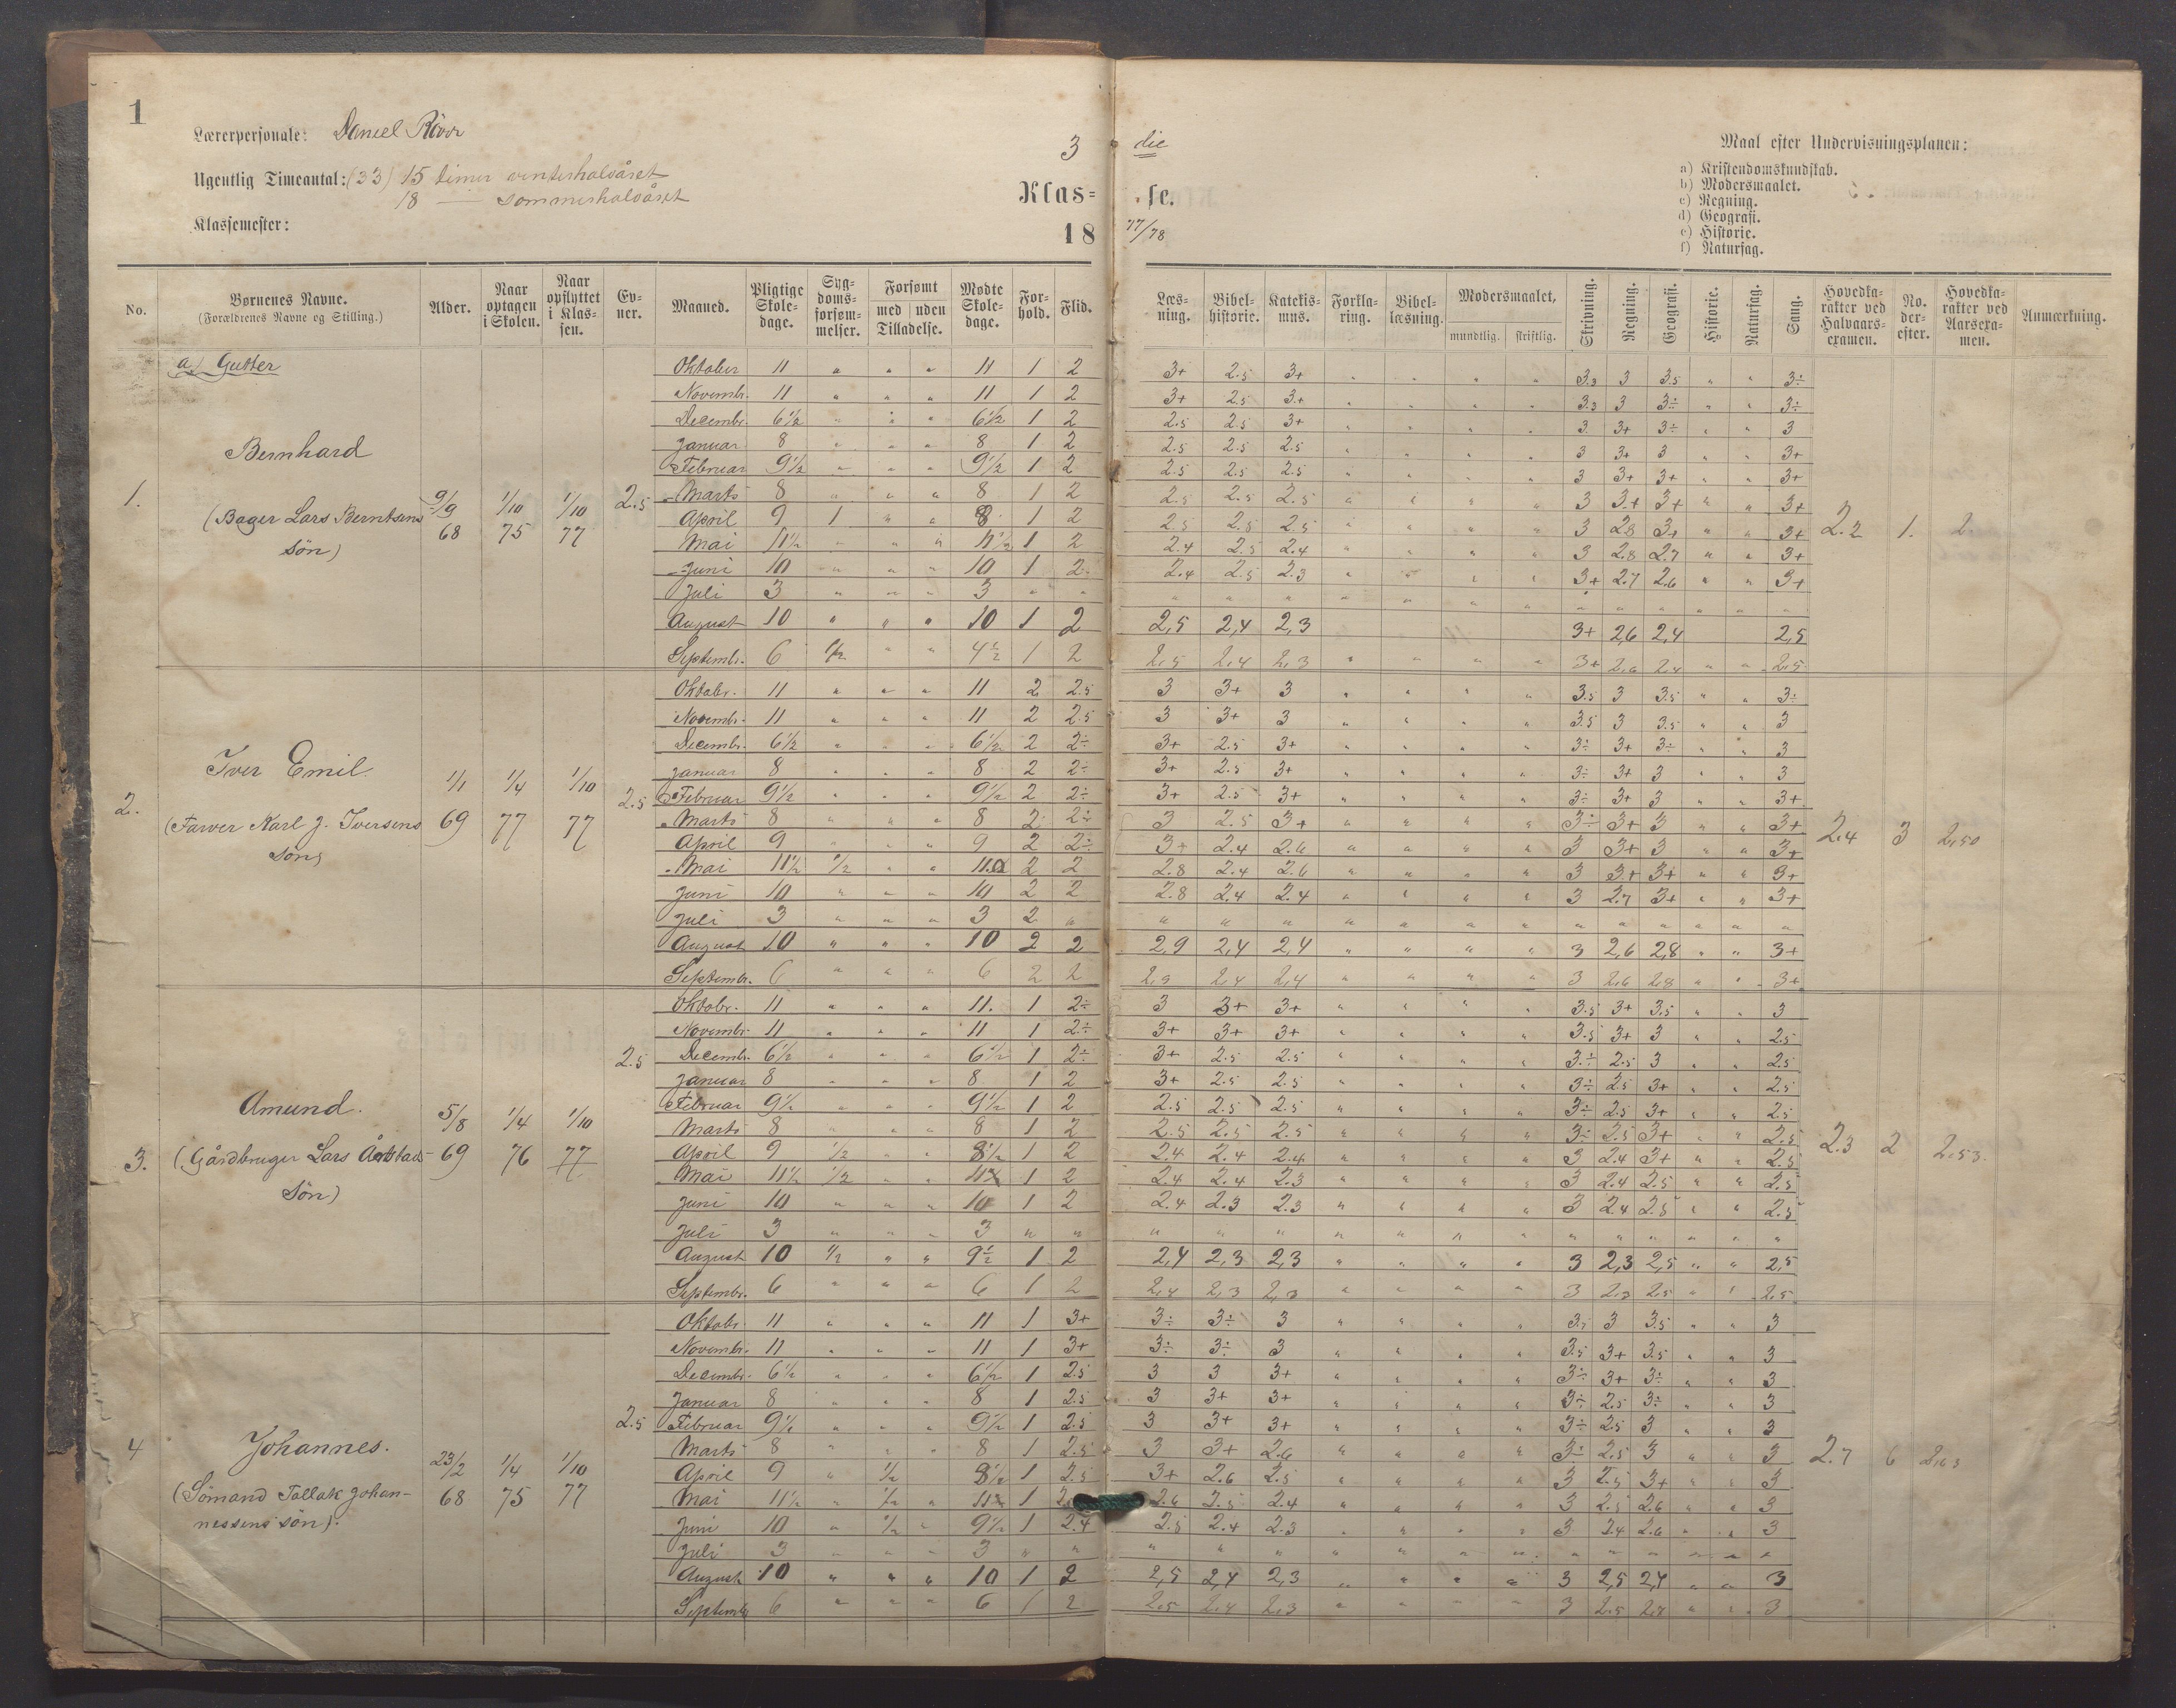 1
Lærerpersonale: Daniel
3 die
Maal efter Undervisningsplanen:
Ugentlig Timeantal: (33) 15 timer vinterhalvåret
18 — sommerhalvåret
Klas= se.
a) Kristendomskundskab.
b) Modersmaalet.
c) Regning.
d) Geografi.
e) Historie.
f) Naturfag.
Klassemester:
18 77/78
No. Børnenes Navne. (Forældrenes Navne og Stilling.) Alder. Naar optagen i Skolen. Naar opflyttet i Klassen. Evner. Maaned. Pligtige Skoledage. Sygdomsforsømmelser. Forsømt med uden Tilladelse. Mødte Skoledage. Forhold. Flid. Læsning. Bibelhistorie. Katekismus. Forklaring. Bibellæsning. Modersmaalet, mundtlig. skriftlig. Skrivning. Regning. Geografi. Historie. Naturfag. Sang. Hovedkarakter ved Halvaarsexamen. No. derefter. Hovedkarakter ved Aarsexamen. Anmærkning.
a) Gutter
1. Bernhard (Bager Lars Berntsens sön) 9/9 68 1/10 75 1/10 77 2.5 2.2 1. 2.
Oktober 11 " " " 11 1 2 3+ 2.5 3+ " " " " 3.3 3 3.5 " " 3÷
Novembr. 11 " " " 11 1 2 3+ 2.5 3+ " " " " 3.3 3 3÷ " " 3÷
Decembr. 6½ " " " 6½ 1 2 2.5 2.5 3+ " " " " 3 3+ 3÷ " " 3
Januar 8 " " " 8 1 2 2.5 2.5 2.5 " " " " 3 3+ 3 " " 3+
Februar 9½ " " " 9½ 1 2 2.5 2.5 2.5 " " " " 3 3+ 3+ " " 3+
Marts 8 " " " 8 1 2 2.5 2.5 2.5 " " " " 3 3+ 3+ " " 3+
April 9 1 " " 8 1 2 2.5 2.5 2.5 " " " " 3 2.8 3+ " " 3+
Mai 11½ " " " 11½ 1 2 2.4 2.5 2.4 " " " " 3 2.8 2.7 " " 3+
Juni 10 " " " 10 1 2 2.4 2.5 2.3 " " " " 3+ 2.7 2.6 " " 3+
Juli 3 " " " 3 " " " " " " " " " " " " " " "
August 10 " " " 10 1 2 2,5 2,4 2,3 3+ 2,6 2,4 2,5
Septembr. 6 " " 4½ 1 2 2,5 2,4 2,3 " " " " 3+ 2,6 2,4 " " 2,5
2. Iver Emil. (Farver Karl J. Iversens sön) 1/1 69 1/4 77 1/10 77 2.5 2.4 3 2,50
Oktobr. 11 " " " 11 2 2.5 3 3+ 3 " " " " 3.5 3 3.5 " " 3÷
Novembr. 11 " " " 11 2 2.5 3 3+ 3 " " " " 3.5 3 3.5 " " 3
Decembr. 6½ " " " 6½ 2 2÷ 3+ 2.5 3+ " " " " 3÷ 3+ 3÷ " " 3
Januar 8 " " " 8 2 2÷ 3+ 2.5 3+ " " " " 3÷ 3+ 3 " " 3
Februar 9½ " " " 9½ 2 2÷ 3+ 2.5 3+ " " " " 3÷ 3+ 3 " " 3+
Marts 8 " " " 8 2 2÷ 3 2.5 3+ " " " " 3÷ 3+ 3 " " 3+
April 9 " " " 9 2 2÷ 3+ 2.4 2.6 " " " " 3 3+ 3 " " 3+
Mai 11½ ½ " " 11 2 2 2.8 2.4 2.6 " " " " 3 3+ 3+ " " 3+
Juni 10 " " " 10 2 2 2.8 2.4 2.4 " " " " 3 2.7 3+ " " 3+
Juli 3 " " " 3 2 " " " " " " " " " " " " " "
August 10 " " " 10 2 2 2,9 2,4 2,4 " " " " 3 2,6 2,8 " " 3+
Septembr. 6 " " " 6 2 2 2,9 2,4 2,4 " " " " 3 2,6 2,8 " " 3+
3. Amund. (Gårdbruger Lars sön) 5/8 69 1/4 76 1/10 77 2.5 2.3 2 2.53
Oktobr. 11 " " " 11. 1 2÷ 3 3+ 3+ " " " " 3.5 3+ 3.5 " " 3
Novembr. 11 " " " 11 1 2÷ 3+ 3+ 3+ " " " " 3.5 3+ 3 " " 2.5
Decembr. 6½ " " " 6½ 1 2÷ 3+ 2.5 2.5 " " " " 3÷ 2.5 3 " " 2.5
Januar 8 " " " 8 1 2 3+ 2.5 2.5 " " " " 3÷ 2.5 3+ " " 2.5
Februar 9½ " " " 9½ 1 2 2.5 2.5 2.5 " " " " 3÷ 2.5 3+ " " 2.5
Marts 8 " " " 8 1 2 2.5 2.5 2.5 " " " " 3÷ 2.5 3+ " " 2.5
April 9 ½ " " 8½ 1 2 2.4 2.4 2.4 " " " " 3 2.4 3+ " " 2.5
Mai 11½ ½ " " 11 1 2 2.4 2.4 2.3 " " " " 3 2.4 2.5 " " 2.5
Juni 10 " " " 10 1 2 2.4 2.3 2.3 " " " " 3 2.4 2.5 " " 2.5
Juli 3 " " " 3 " " " " " " " " " " " " " " "
August 10 ½ " " 9½ 1 2 2,4 2,3 2,3 " " " " 3 2,3 2,5 " " 2,5
Septembr. 6 " " " 6 1 2 2,4 2,3 2,3 " " " " 3 2,3 2,5 " " 2,5
4 Johannes. (Sömand Tallak Johannessens sön). 23/2 68 1/4 75 1/10 77 2.5 2.7 6 2,63
Oktobr. 11 " " " 11 1 3+ 3÷ 3÷ 3 " " " " 3.5 3 3.5 " " 3
Novembr. 11 " " " 11 1 3+ 3÷ 3÷ 3 " " " " 3.5 3+ 3.5 " " 3
Decembr. 6½ " " " 6½ 1 2.5 3 3 3+ " " " " 3÷ 3+ 3÷ " " 3
Januar 8 " " " 8 1 2.5 3 3+ 3+ " " " " 3÷ 2.5 3÷ " " 3
Februar 9½ " " " 9½ 1 2.5 3 3+ 3+ " " " " 3÷ 2.5 3 " " 3
Marts 8 " " " 8 1 2.5 3 3+ 2.6 " " " " 3÷ 2.5 3 " " 3
April 9 " ½ 8½ 1 2.5 3+ 2.6 2.5 " " " " 3 2.5 3+ " " 3
Mai 11½ " ½ " 11 1 2.6 2.5 2.4 " " " " 3 2.5 2.6 " " 3
Juni 10 " ½ " 9½ 1 2.4 2.5 2.4 2.3 " " " " 3 2.4 2.6 " " 3
Juli 3 " " " 3 " " " " " " " " " " " " " " "
August 10 " " " 10 1 2 2,5 2,4 2,3 " " " " 3 2,5 2,4 " " 3
Septembr 6 " " " 6 1 2 2.5 2.4 2.3 " " " " 3 2.5 " " 3